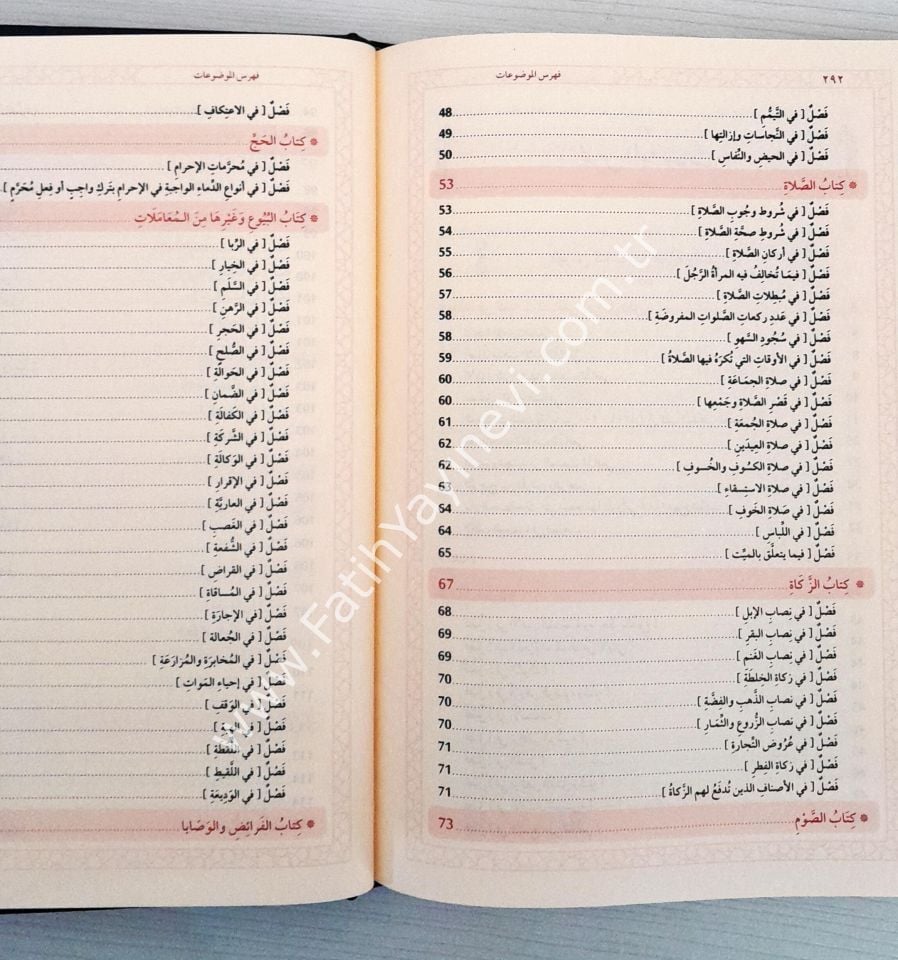 ٢٩٢ فهرس الموضوعات
فَصْلٌ [ في التَّيَمُّمِ ] 48
فَصْلٌ [ في النَّجاساتِ وإزالتِها ] 49
فَصْلٌ [ في الحيضِ والنِّفاسِ ] 50
* كِتَابُ الصَّلَاةِ 53
فَصْلٌ [ في شُروطِ وجُوبِ الصَّلاةِ ] 53
فَصْلٌ [ في شُروطِ صحَّةِ الصَّلاةِ ] 54
فَصْلٌ [ في أركانِ الصَّلاةِ ] 55
فَصْلٌ [ فيمَا تُخالِفُ فيه المرأةُ الرَّجُلَ ] 56
فَصْلٌ [ في مُبطِلاتِ الصَّلاةِ ] 57
فَصْلٌ [ في عَددِ ركعاتِ الصَّلواتِ المفروضةِ ] 58
فَصْلٌ [ في سُجُودِ السَّهوِ ] 58
فَصْلٌ [ في الأوقاتِ التي تُكرَهُ فيها الصَّلاةُ ] 59
فَصْلٌ [ في صلاةِ الجماعَةِ ] 60
فَصْلٌ [ في قَصْرِ الصَّلاةِ وجَمْعِها ] 60
فَصْلٌ [ في صلاةِ الجُمعَةِ ] 61
فَصْلٌ [ في صلاةِ العِيدَينِ ] 62
فَصْلٌ [ في صلاةِ الكسُوفِ والخُسوفِ ] 62
فَصْلٌ [ في صلاةِ الاستِسقاءِ ] 63
فَصْلٌ [ في صَلاةِ الخَوفِ ] 64
فَصْلٌ [ في اللِّباسِ ] 64
فَصْلٌ [ فيما يتعلَّق بالميِّت ] 65
* كِتَابُ الزَّكَاةِ 67
فَصْلٌ [ في نِصابِ الإبلِ ] 68
فَصْلٌ [ في نِصابِ البقرِ ] 69
فَصْلٌ [ في نِصابِ الغَنمِ ] 69
فَصْلٌ [ في زكاةِ الخِلطَةِ ] 70
فَصْلٌ [ في نصابِ الذَّهبِ والفِضَّةِ ] 70
فَصْلٌ [ في نصابِ الزُّروعِ والثِّمارِ ] 70
فَصْلٌ [ في عُروضِ التِّجارةِ ] 71
فَصْلٌ [ في زكاةِ الفِطرِ ] 71
فَصْلٌ [ في الأصنافِ الذين تُدفَعُ لهم الزَّكاةُ ] 71
* كِتَابُ الصَّوْمِ 73
فهرس الموضوعات
فَصْلٌ [ في الاعتِكافِ ]
* كِتَابُ الحَجِّ
فَصْلٌ [ في مُحرَّماتِ الإحرامِ ]
فَصْلٌ [ في أنواعِ الدِّماءِ الواجبةِ في الإحرامِ بتَركِ واجبٍ أو فِعلِ مُحَرَّمٍ ]
* كِتَابُ البُيُوعِ وَغَيْرِهَا مِنَ المُعَامَلَاتِ
فَصْلٌ [ في الرِّبا ]
فَصْلٌ [ في الخِيارِ ]
فَصْلٌ [ في السَّلَمِ ]
فَصْلٌ [ في الرَّهنِ ]
فَصْلٌ [ في الحَجرِ ]
فَصْلٌ [ في الصُّلحِ ]
فَصْلٌ [ في الحَوالةِ ]
فَصْلٌ [ في الضَّمانِ ]
فَصْلٌ [ في الكَفالةِ ]
فَصْلٌ [ في الشَّركةِ ]
فَصْلٌ [ في الوَكالةِ ]
فَصْلٌ [ في الإقرارِ ]
فَصْلٌ [ في العاريَّةِ ]
فَصْلٌ [ في الغَصبِ ]
فَصْلٌ [ في الشُّفعةِ ]
فَصْلٌ [ في القراضِ ]
فَصْلٌ [ في المُساقاةِ ]
فَصْلٌ [ في الإجارَةِ ]
فَصْلٌ [ في الجُعالة ]
فَصْلٌ [ في المُخابرَةِ والمُزارَعَةِ ]
فَصْلٌ [ في إحياءِ المَواتِ ]
فَصْلٌ [ في الوَقفِ ]
فَصْلٌ [ في الهبةِ ]
فَصْلٌ [ في اللُّقَطَةِ ]
فَصْلٌ [ في اللَّقيطِ ]
فَصْلٌ [ في الوَدِيعَةِ ]
* كِتَابُ الفَرائِضِ والوَصَايا
www.FatihYayinevi.com.tr